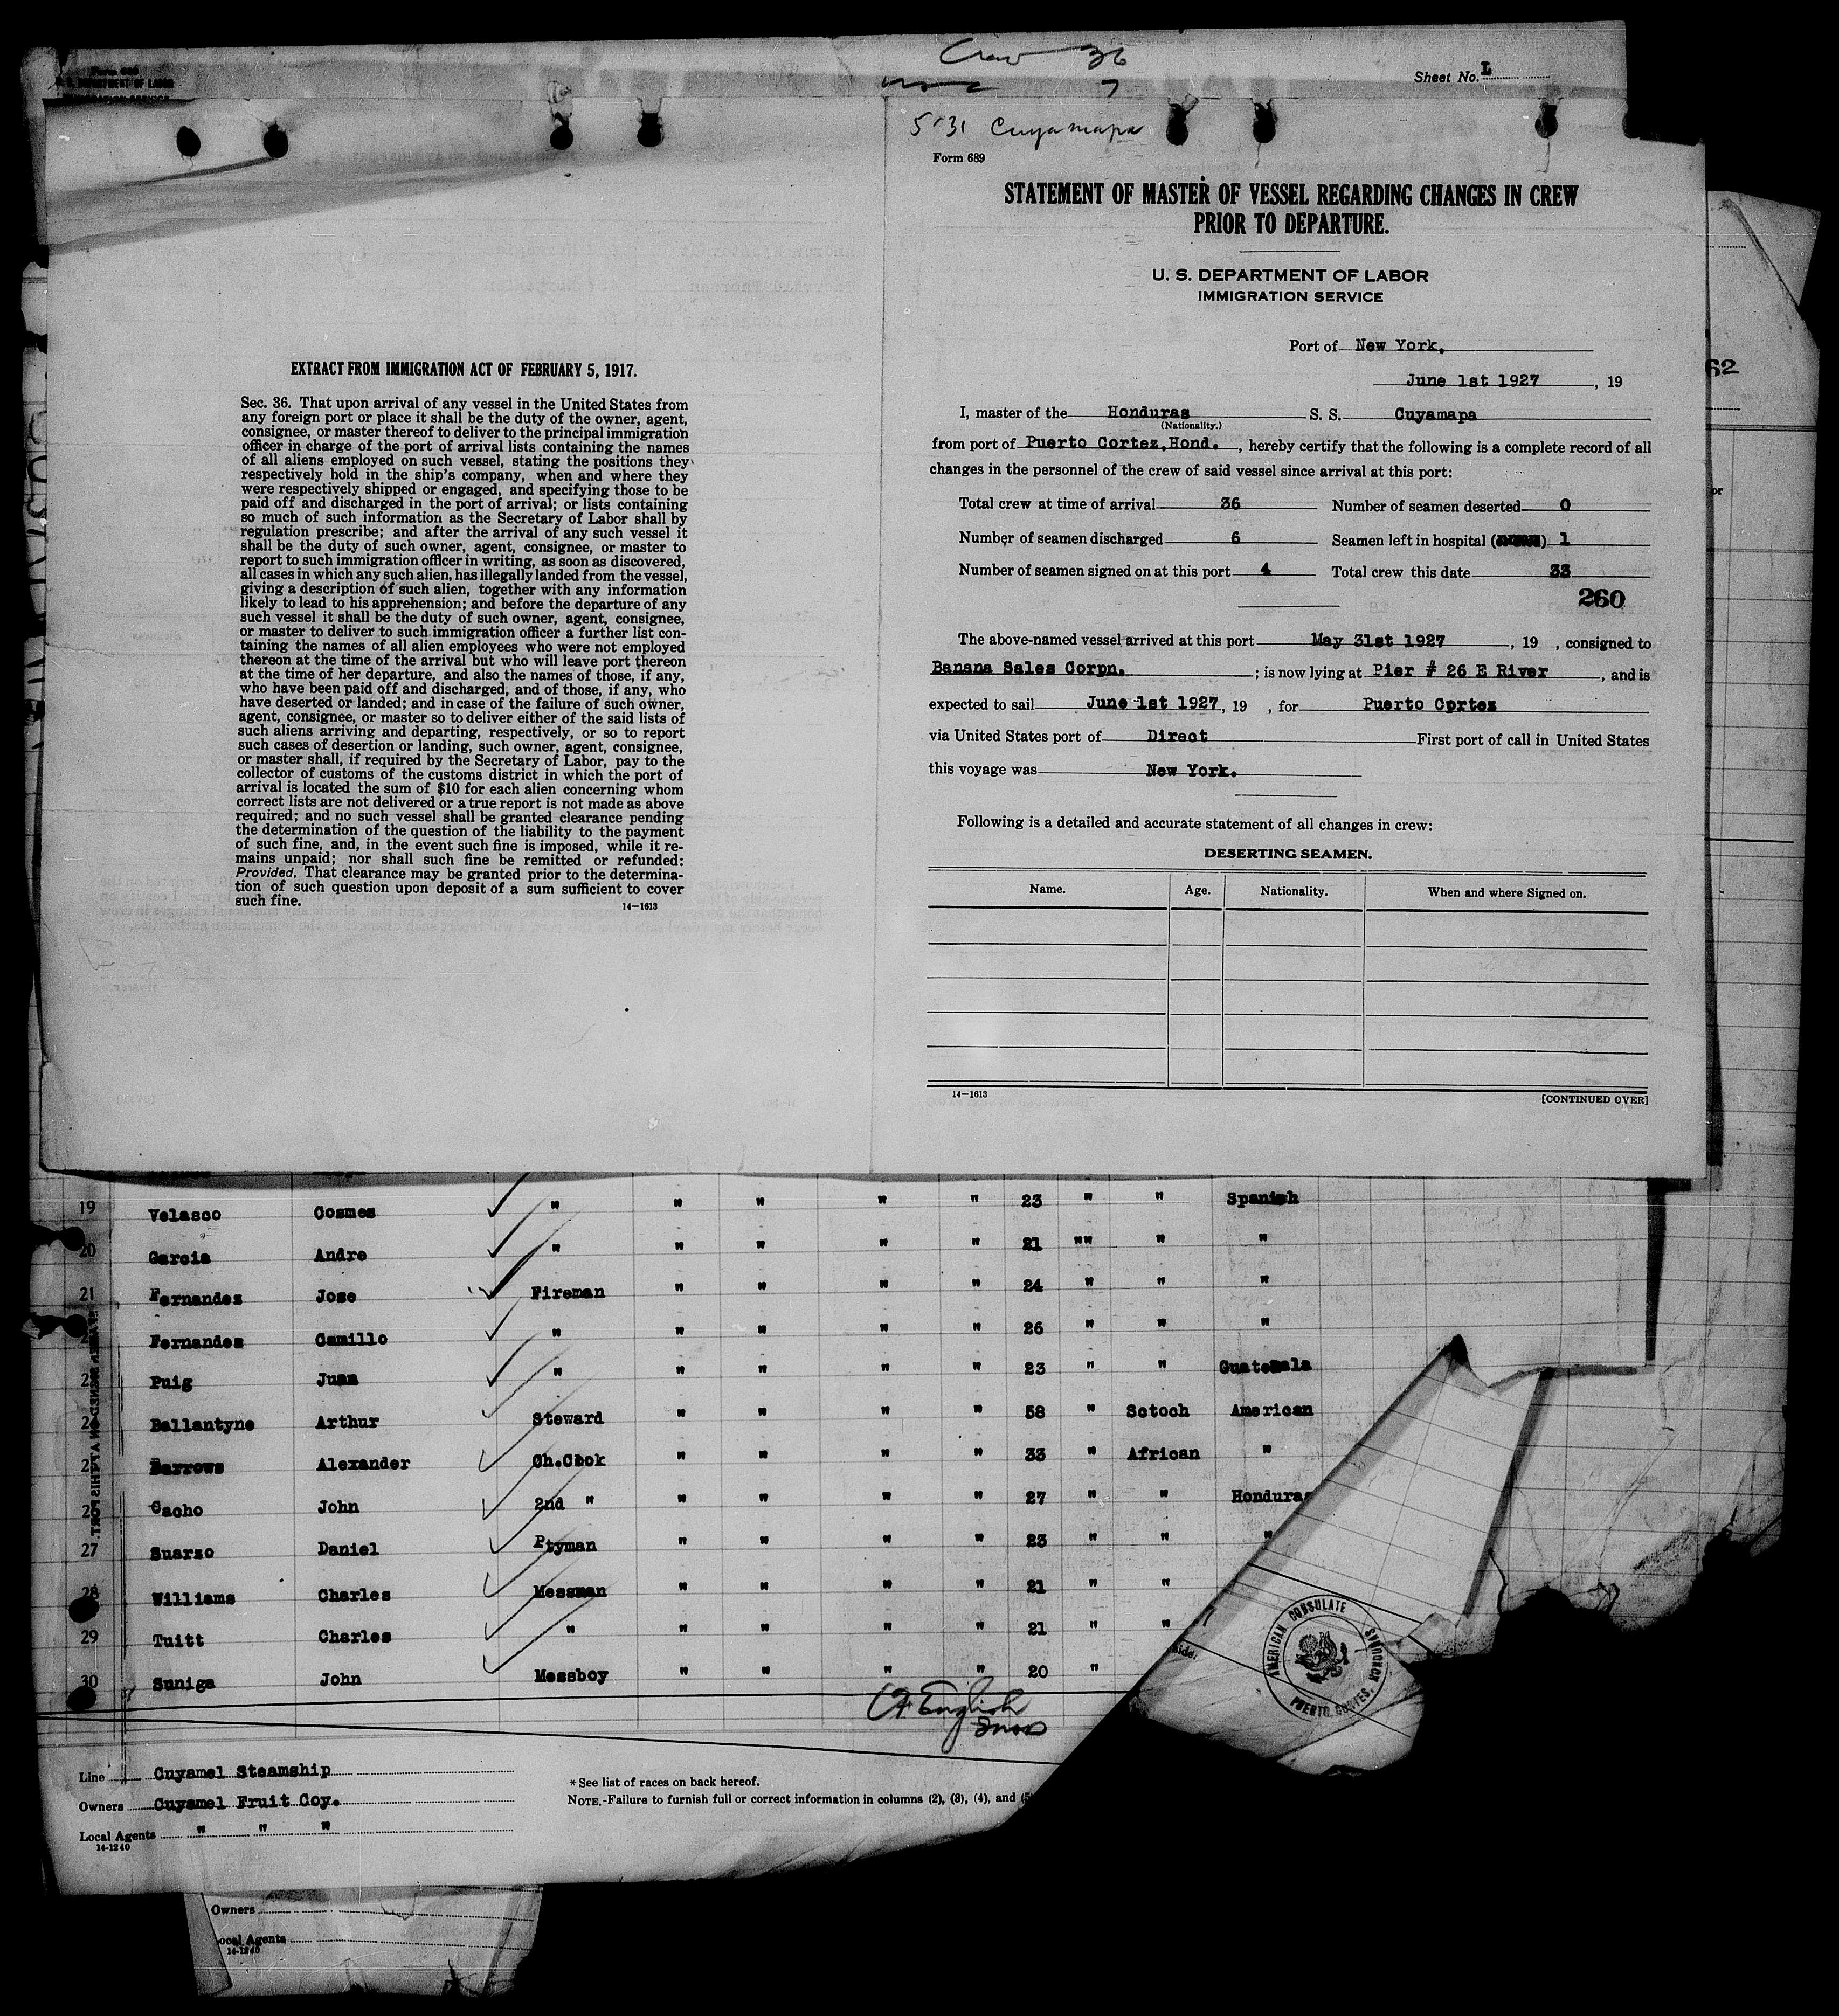 Crew 36
Sheet No. L
5/31 Cuyamapa
Form 689
STATEMENT OF MASTER OF VESSEL REGARDING CHANGES IN CREW
PRIOR TO DEPARTURE.
U. S. DEPARTMENT OF LABOR
IMMIGRATION SERVICE
Port of New York.
June 1st 1927, 19
I, master of the Honduras S. S. Cuyamapa
(Nationality.)
from port of Puerto Cortez, Hond., hereby certify that the following is a complete record of all
changes in the personnel of the crew of said vessel since arrival at this port:
Total crew at time of arrival 36 Number of seamen deserted 0
Number of seamen discharged 6 Seamen left in hospital 1
Number of seamen signed on at this port 4 Total crew this date 33
260
The above-named vessel arrived at this port May 31st 1927, 19 , consigned to
Banana Sales Corpn. ; is now lying at Pier # 26 E River, and is
expected to sail June 1st 1927, 19 , for Puerto Cortez
via United States port of Direct First port of call in United States
this voyage was New York.
Following is a detailed and accurate statement of all changes in crew:
DESERTING SEAMEN.
Name. Age. Nationality. When and where Signed on.
14—1613 [CONTINUED OVER]
EXTRACT FROM IMMIGRATION ACT OF FEBRUARY 5, 1917.
Sec. 36. That upon arrival of any vessel in the United States from
any foreign port or place it shall be the duty of the owner, agent,
consignee, or master thereof to deliver to the principal immigration
officer in charge of the port of arrival lists containing the names
of all aliens employed on such vessel, stating the positions they
respectively hold in the ship's company, when and where they
were respectively shipped or engaged, and specifying those to be
paid off and discharged in the port of arrival; or lists containing
so much of such information as the Secretary of Labor shall by
regulation prescribe; and after the arrival of any such vessel it
shall be the duty of such owner, agent, consignee, or master to
report to such immigration officer in writing, as soon as discovered,
all cases in which any such alien, has illegally landed from the vessel,
giving a description of such alien, together with any information
likely to lead to his apprehension; and before the departure of any
such vessel it shall be the duty of such owner, agent, consignee,
or master to deliver to such immigration officer a further list con-
taining the names of all alien employees who were not employed
thereon at the time of the arrival but who will leave port thereon
at the time of her departure, and also the names of those, if any,
who have been paid off and discharged, and of those, if any, who
have deserted or landed; and in case of the failure of such owner,
agent, consignee, or master so to deliver either of the said lists of
such aliens arriving and departing, respectively, or so to report
such cases of desertion or landing, such owner, agent, consignee,
or master shall, if required by the Secretary of Labor, pay to the
collector of customs of the customs district in which the port of
arrival is located the sum of $10 for each alien concerning whom
correct lists are not delivered or a true report is not made as above
required; and no such vessel shall be granted clearance pending
the determination of the question of the liability to the payment
of such fine, and, in the event such fine is imposed, while it re-
mains unpaid; nor shall such fine be remitted or refunded:
Provided, That clearance may be granted prior to the determina-
tion of such question upon deposit of a sum sufficient to cover
such fine. 14—1613
62
19 Velasco Cosmes " " " " " 23 " " Spanish
20 Garcia Andre " " " " " 21 "" " "
21 Fernandez Jose Fireman " " " " 24 " " "
Fernandes Camillo " " " " " 26 " " "
Puig Juan " " " " " 23 " " Guatemala
24 Ballantyne Arthur Steward " " " " 58 " Sctoch American
25 Barrows Alexander Ch.Cook " " " " 33 " African "
26 Cacho John 2nd " " " " " 27 " " Honduras
27 Suarzo Daniel Ptyman " " " " 23 " " "
28 Williams Charles Messman " " " " 21 " "
29 Tuitt Charles " " " " " 21 " "
30 Suniga John Messboy " " " " 20 "
English
AMERICAN CONSULATE
PUERTO CORTES, HONDURAS
Line Cuyamel Steamship
Owners Cuyamel Fruit Coy.
Local Agents " " "
14-1240
* See list of races on back hereof.
NOTE.-Failure to furnish full or correct information in columns (2), (3), (4), and (5)
Owners
ocal Agents
14-1240